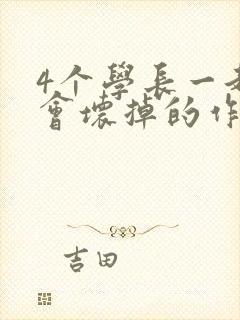 4个學長一
會壞掉的作
吉田